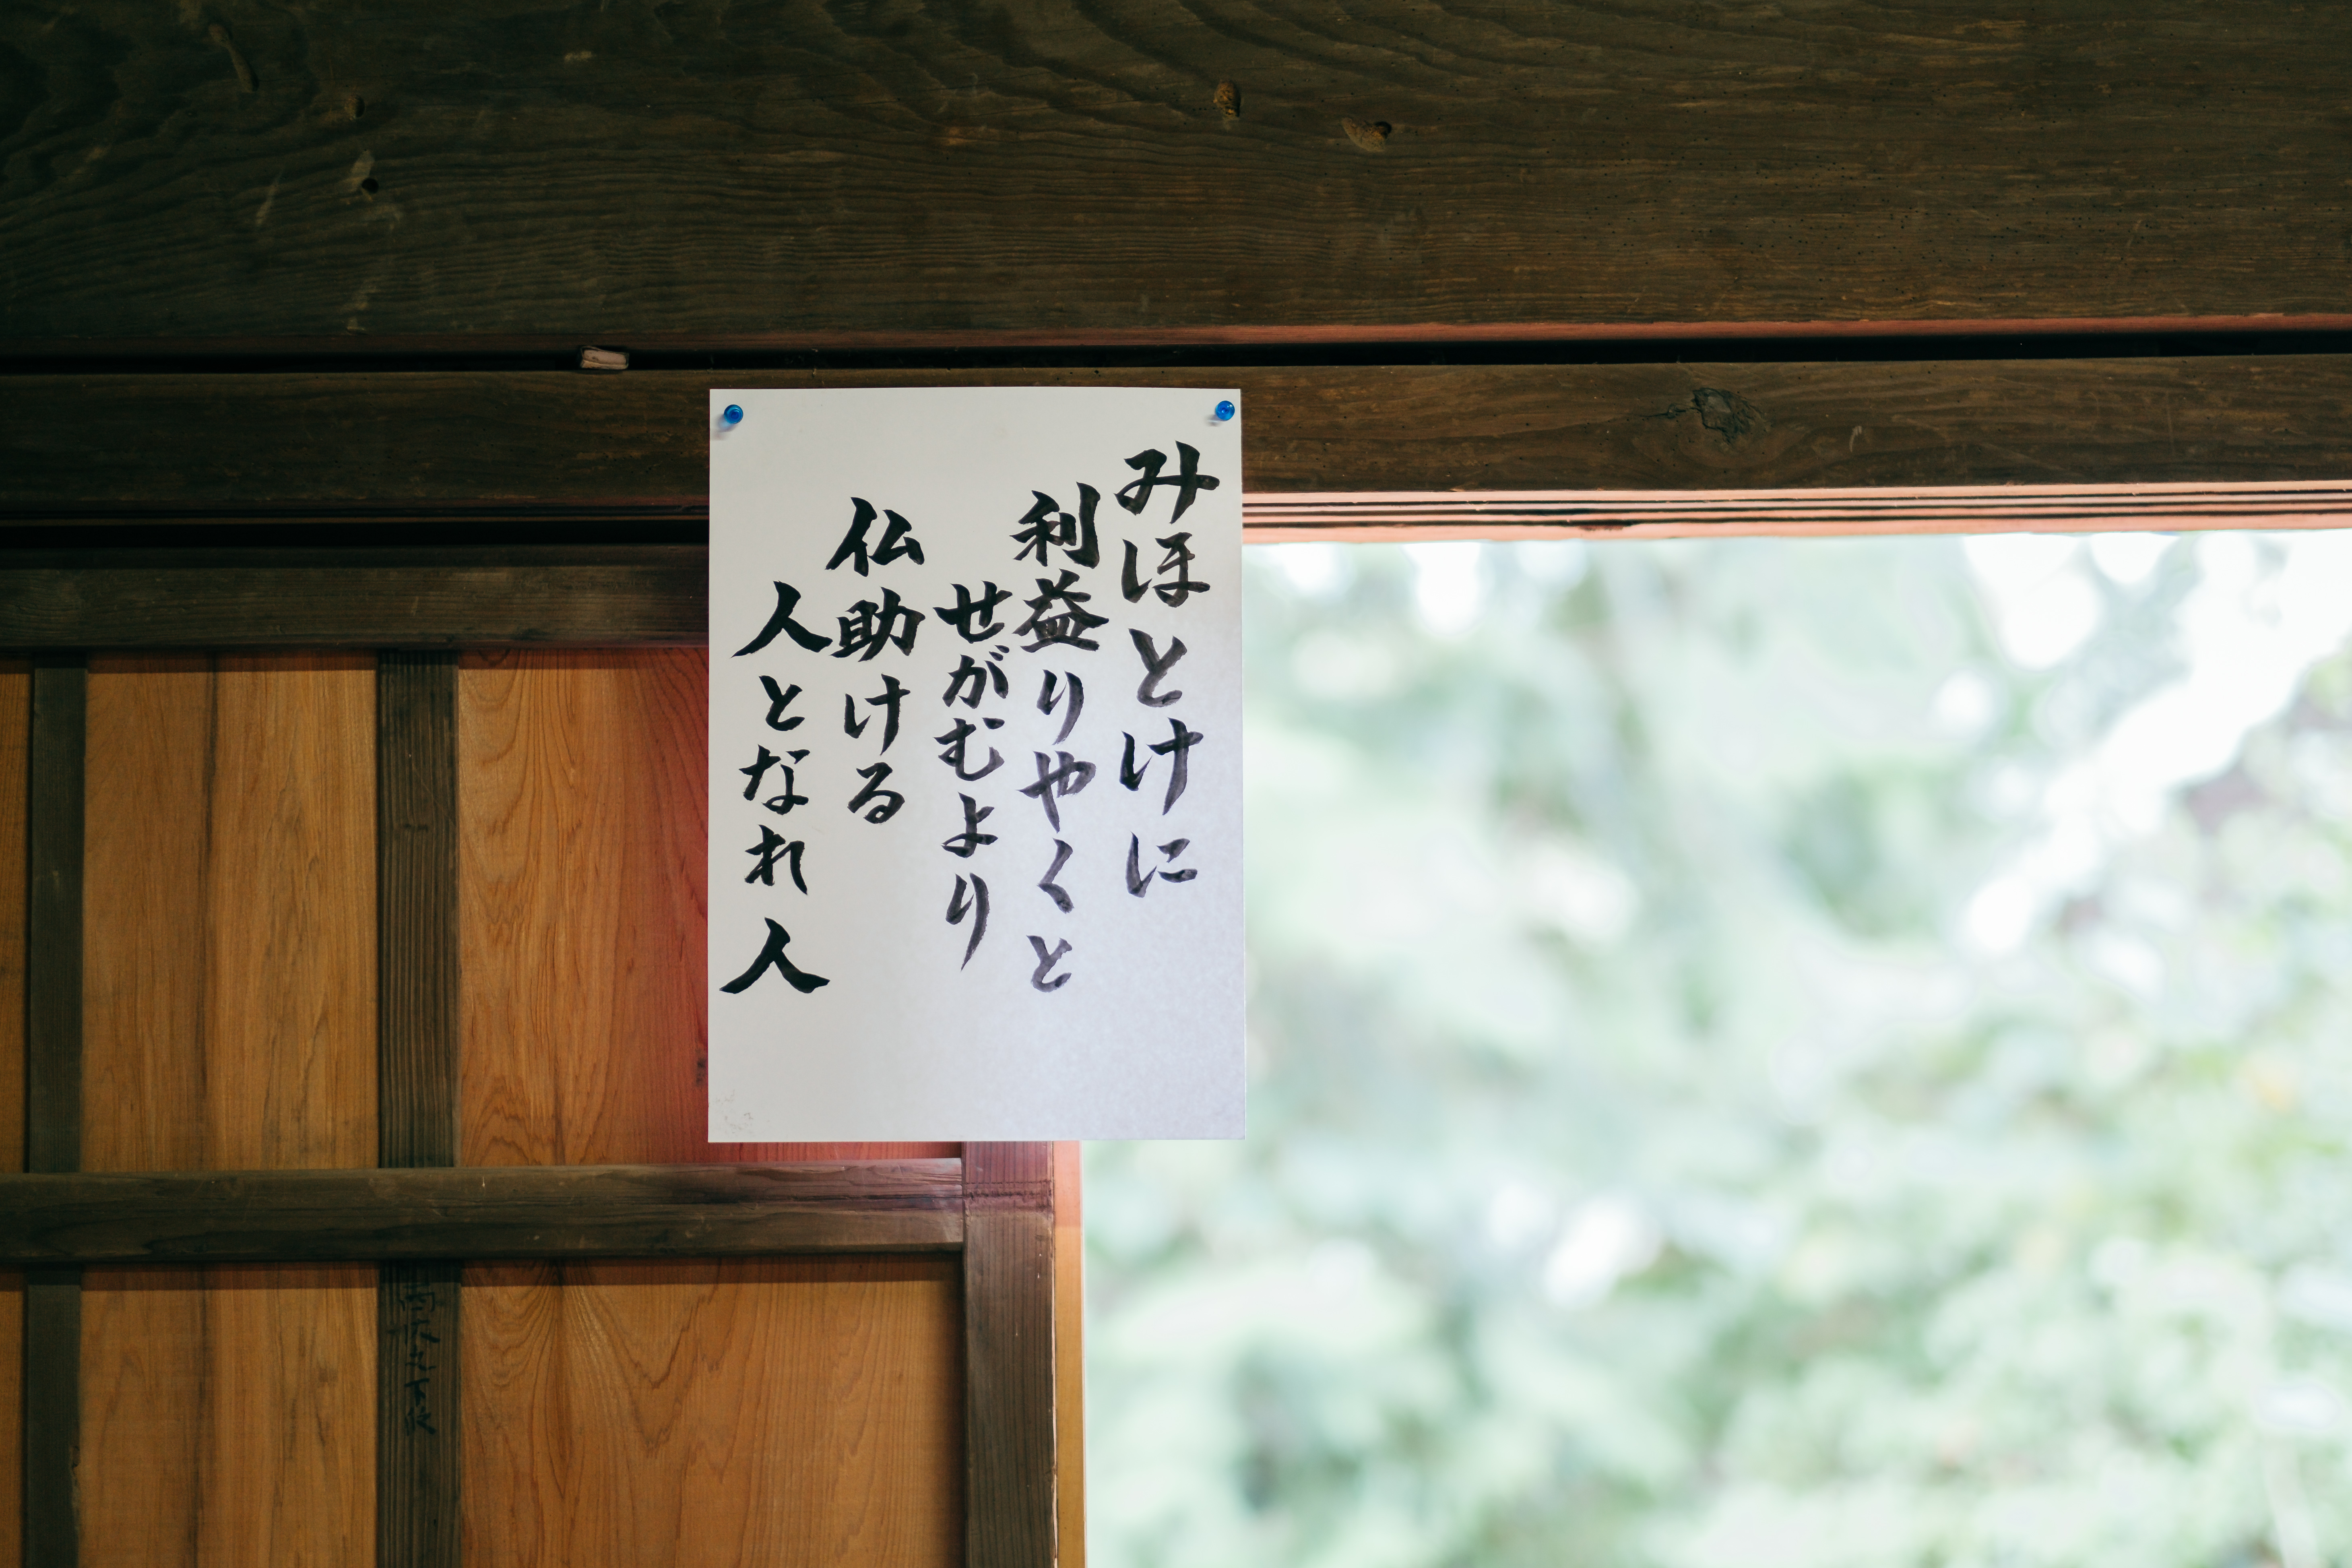 みほとけに
利益りやくと
せがむより
仏助ける
人となれ人